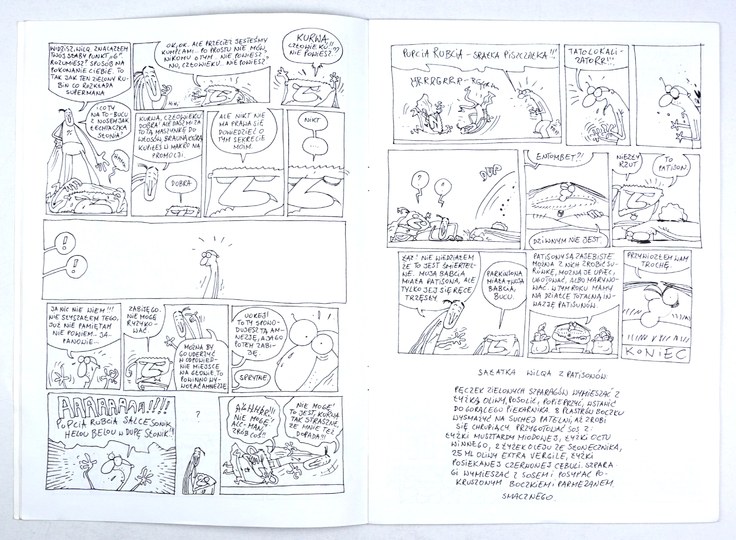 WIDZISZ, WILQ, ZNALAZŁEM
TWÓJ SŁABY PUNKT „G”
ROZUMIESZ? SPOSÓB NA
POKONANIE CIEBIE. TO
TAK JAK TEN ZIELONY RU-
BIN CO ROZKŁADA
SUPERMANA
I CO TY
NA TO - BUCU
Z NOSEM JAK
ŁECHTACZKA
SŁONIA?
OK, OK. ALE PRZECIEŻ JESTEŚMY
KUMPLAMI... PO PROSTU NIE MÓW
NIKOMU O TYM. NIE POWIESZ?
NO, CZŁOWIEKU. NIE POWIESZ?
KURWA,
CZŁOWIEKU!!
NIE POWIESZ?
KURWA, CZŁOWIEKU
DOBRA! NIE DASZ MI ZA
TO TĄ MASZYNKĘ DO
WŁOSÓW BRAUNA, KTÓRĄ
KUPIŁEŚ W MAKRO NA
PROMOCJI.
DOBRA
ALE NIKT NIE
MA PRAWA SIĘ
DOWIEDZIEĆ O
TYM SEKRECIE
MOIM.
NIKT
!
!
JA NIC NIE WIEM!!!
NIE SŁYSZAŁEM TEGO,
JUŻ NIE PAMIĘTAM
NIE POWIEM... JA-
PANOLIE...
ZABIJĘ GO.
NIE MOGĘ
RYZYKO-
WAĆ
MOŻNA BY
GO UDERZYĆ
W ODPOWIED-
NIE MIEJSCE
NA GŁOWIE. TO
POWINNO WY-
WOŁAĆ AMNEZJĘ.
UDKEJ!
TO TY SPOWO-
DUJESZ TĄ AM-
NEZJĘ, A JA GO
POTEM ZABI-
JĘ.
SPRYTNE
AAAAAAAAA!!!!
PUPCIA RUBCIA SALCESONIK
HELOŁ BELOŁ W DUPĘ SŁONIK!!
?
NIE MOGĘ!
TO JEST, KURWA
TAK STRASZNE,
ŻE MNIE TEŻ
DOPADA!!
PUPCIA RUBCIA - SRAKA PISZCZAŁKA!!!
MRRRGRRR - RGRR
TATO LOKALI-
ZATORR!!!
?
?
PUP
ENTOMBET?!
DZIWNYM NIE JEST
NIEZŁY
RZUT
TO
PATISON
ŁAŁ! NIE WIEDZIAŁEM
ŻE TO JEST ŚMIERTEL-
NE. MOJA BABCIA
MIAŁA PATISONA, ALE
TYLKO JEJ SIĘ RĘCE
TRZĘSŁY.
PARKINSONA
MIAŁA TWOJA
BABCIA,
BUCU.
PATISONY SĄ ZAJEBISTE
MOŻNA Z NICH ZROBIĆ SU-
RÓWKĘ, MOŻNA JE UPIEC,
UGOTOWAĆ, ALBO MARYNO-
WAĆ. W TYM ROKU MAMY
NA DZIAŁCE TOTALNĄ IN-
WAZJĘ PATISONÓW.
PRZYWIOZŁEM WAM
TROCHĘ.
KONIEC
SAŁATKA WILQA Z PATISONÓW
PĘCZEK ZIELONYCH SZPARAGÓW WYMIESZAĆ Z
ŁYŻKĄ OLIWY, POSOLIĆ, POPIEPRZYĆ, WSTAWIĆ
DO GORĄCEGO PIEKARNIKA. 8 PLASTRÓW BOCZKU
WYSMAŻYĆ NA SUCHEJ PATELNI, AŻ ZROBI
SIĘ CHRUPIĄCY. PRZYGOTOWAĆ SOS Z:
ŁYŻKI MUSZTARDY MIODOWEJ, ŁYŻKI OCTU
WINNEGO, 2 ŁYŻEK OLEJU ZE SŁONECZNIKA,
25 ML OLIWY EXTRA VERGILE, ŁYŻKI
POSIEKANEJ CZERWONEJ CEBULI. SZPARA-
GI WYMIESZAĆ Z SOSEM I POSYPAĆ PO-
KRUSZONYM BOCZKIEM I PARMEZANEM.
SMACZNEGO